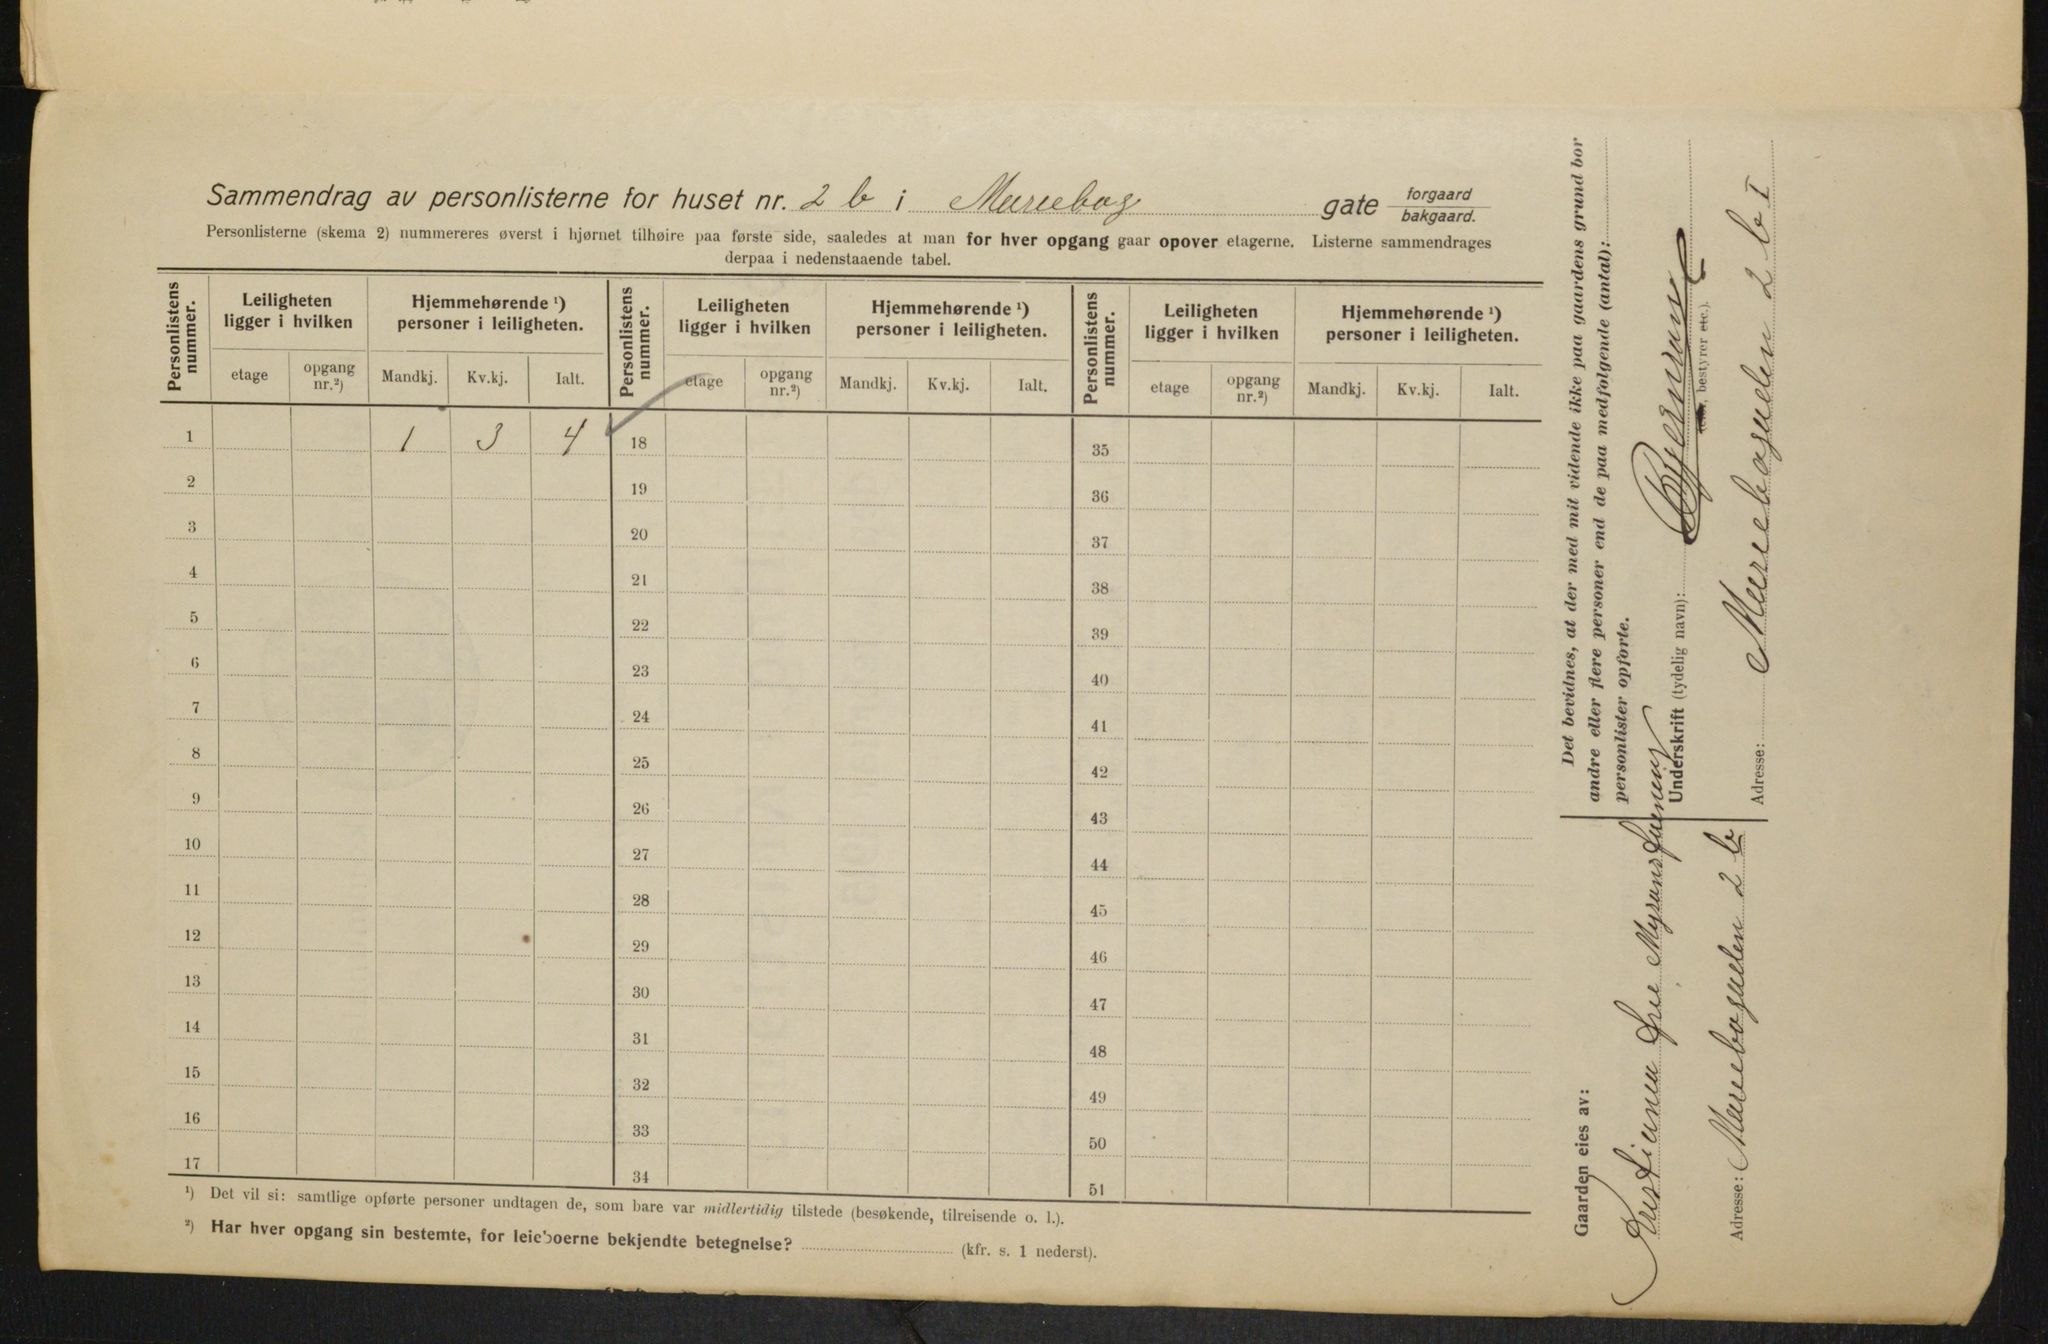 Sammendrag av personlisterne for huset nr. 2 b i Mariebog gate forgaard bakgaard.
Personlisterne (skema 2) nummereres øverst i hjørnet tilhøire paa første side, saaledes at man for hver opgang gaar opover etagerne. Listerne sammendrages
derpaa i nedenstaaende tabel.
Personlistens nummer. Leiligheten ligger i hvilken Hjemmehørende ¹) personer i leiligheten. Personlistens nummer. Leiligheten ligger i hvilken Hjemmehørende ¹) personer i leiligheten. Personlistens nummer. Leiligheten ligger i hvilken Hjemmehørende ¹) personer i leiligheten.
etage opgang nr.²) Mandkj. Kv.kj. Ialt. etage opgang nr.²) Mandkj. Kv.kj. Ialt. etage opgang nr.²) Mandkj. Kv.kj. Ialt.
1 1 3 4 18 35
2 19 36
3 20 37
4 21 38
5 22 39
6 23 40
7 24 41
8 25 42
9 26 43
10 27 44
11 28 45
12 29 46
13 30 47
14 31 48
15 32 49
16 33 50
17 34 51
¹) Det vil si: samtlige opførte personer undtagen de, som bare var midlertidig tilstede (besøkende, tilreisende o. l.).
²) Har hver opgang sin bestemte, for leieboerne bekjendte betegnelse? (kfr. s. 1 nederst).
Det bevidnes, at der med mit vidende ikke paa gaardens grund bor
andre eller flere personer end de paa medfølgende (antal):
personlister opførte.
Underskrift (tydelig navn):
bestyrer etc.).
Adresse: Mariebogaden 2 b I
Gaarden eies av:
Adresse: Mariebogaden 2 b